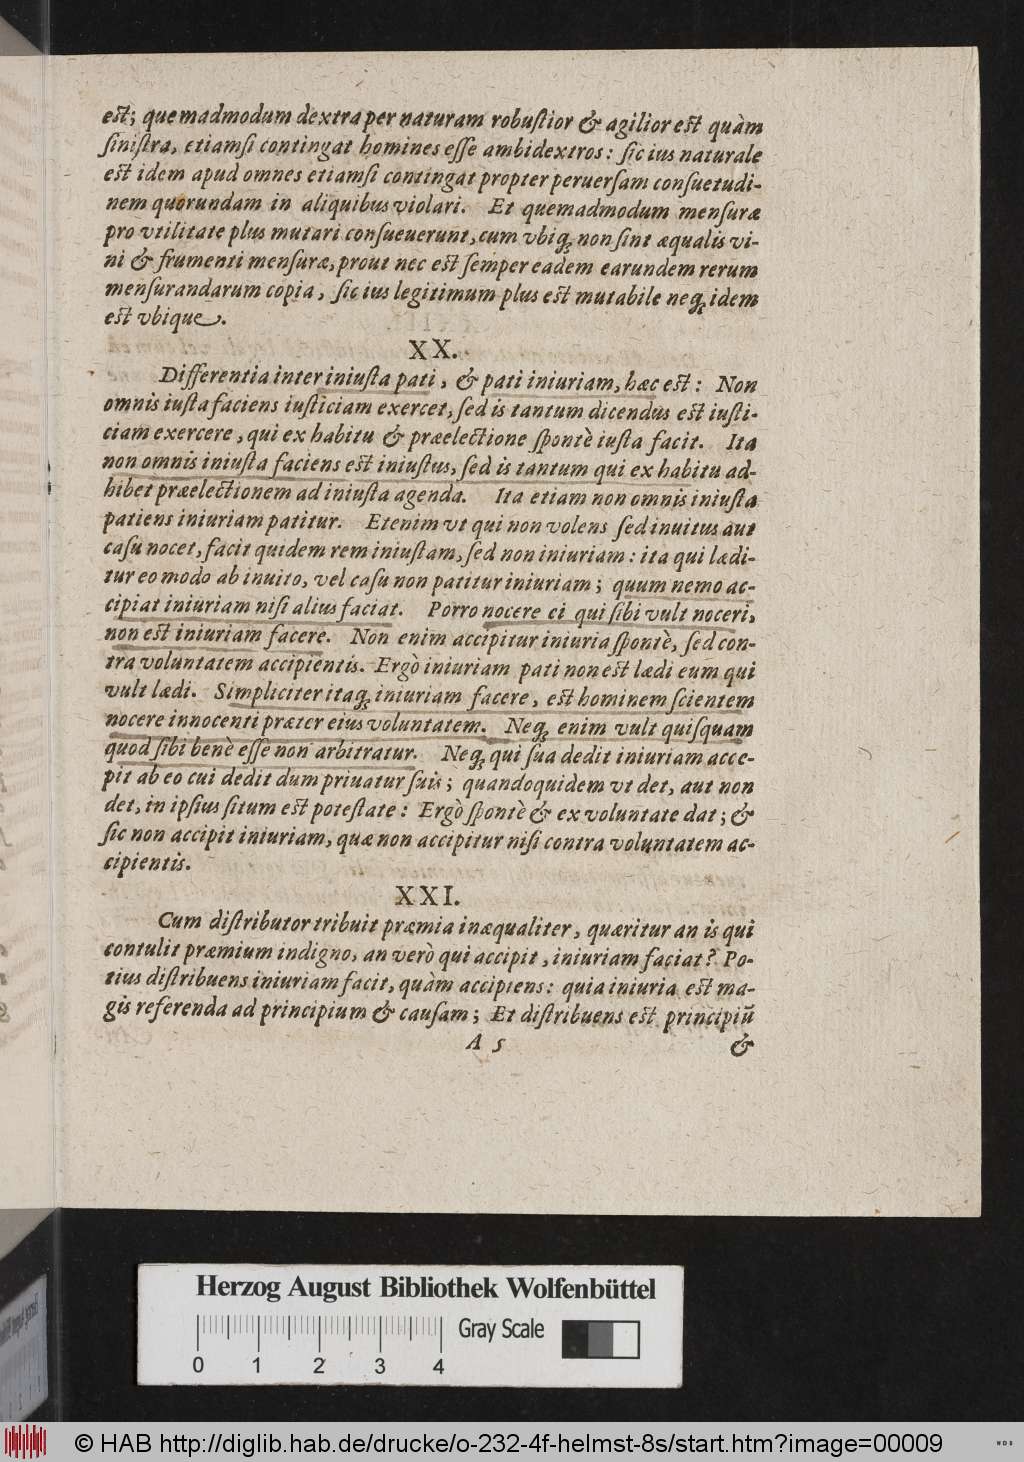 est; quemadmodum dextra per naturam robustior & agilior est quàm
sinistra, etiamsi contingat homines esse ambidextros: sic ius naturale
est idem apud omnes etiamsi contingat propter peruersam consuetudi-
nem quorundam in aliquibus violari. Et quemadmodum mensuræ
pro vtilitate plus mutari consueuerunt, cum vbiq; non sint æqualis vi-
ni & frumenti mensuræ, prout nec est semper eadem earundem rerum
mensurandarum copia, sic ius legitimum plus est mutabile neq; idem
est vbique.
XX.
Differentia inter iniusta pati, & pati iniuriam, hæc est: Non
omnis iusta faciens iusticiam exercet, sed is tantum dicendus est iusti-
ciam exercere, qui ex habitu & præelectione spontè iusta facit. Ita
non omnis iniusta faciens est iniustus, sed is tantum qui ex habitu ad-
hibet præelectionem ad iniusta agenda. Ita etiam non omnis iniusta
patiens iniuriam patitur. Etenim vt qui non volens sed inuitus aut
casu nocet, facit quidem rem iniustam, sed non iniuriam: ita qui lædi-
tur eo modo ab inuito, vel casu non patitur iniuriam; quum nemo ac-
cipiat iniuriam nisi alius faciat. Porro nocere ei qui sibi vult noceri,
non est iniuriam facere. Non enim accipitur iniuria spontè, sed con-
tra voluntatem accipientis. Ergò iniuriam pati non est lædi eum qui
vult lædi. Simpliciter itaq; iniuriam facere, est hominem scientem
nocere innocenti præter eius voluntatem. Neq; enim vult quisquam
quod sibi benè esse non arbitratur. Neq; qui sua dedit iniuriam acce-
pit ab eo cui dedit dum priuatur suis; quandoquidem vt det, aut non
det, in ipsius situm est potestate: Ergò spontè & ex voluntate dat; &
sic non accipit iniuriam, quæ non accipitur nisi contra voluntatem ac-
cipientis.
XXI.
Cum distributor tribuit præmia inæqualiter, quæritur an is qui
contulit præmium indigno, an verò qui accipit, iniuriam faciat? Po-
tius distribuens iniuriam facit, quàm accipiens: quia iniuria est ma-
gis referenda ad principium & causam; Et distribuens est principiũ
A 5 &
Herzog August Bibliothek Wolfenbüttel
0 1 2 3 4 Gray Scale
© HAB http://diglib.hab.de/drucke/o-232-4f-helmst-8s/start.htm?image=00009